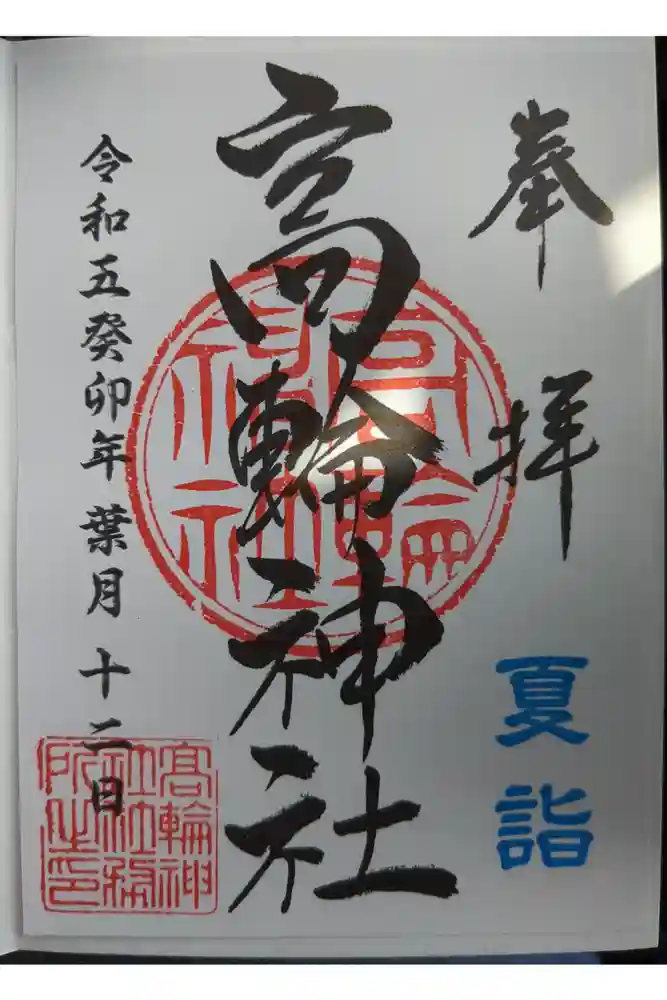 奉拝
夏詣
高輪神社
高輪神社
令和五癸卯年葉月十二日
高輪神
社社務
所之印